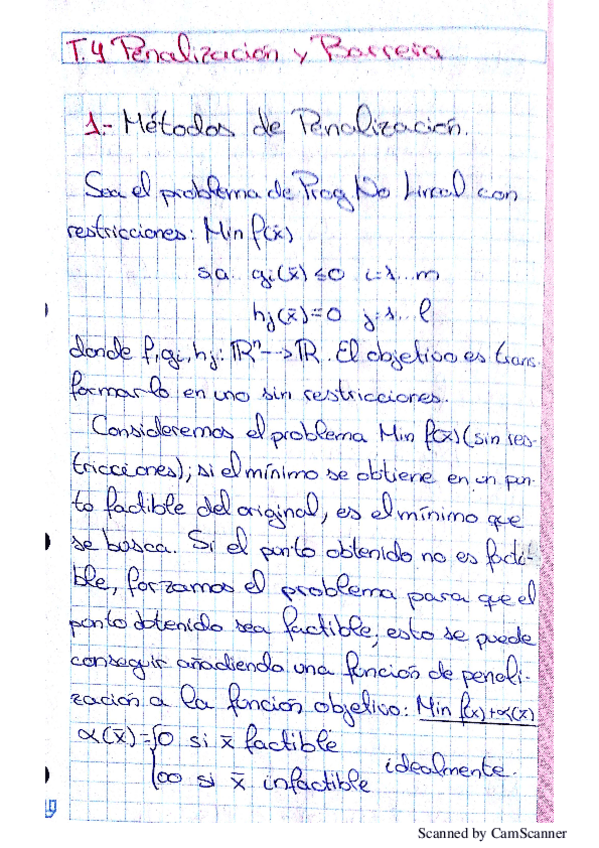 T.4 Penalización y Barrera
1.- Métodos de Penalización.
Sea el problema de Prog No Lineal con
restricciones: Min f(x̄)
s.a. gi(x̄) ≤ 0 i=1...m
hj(x̄)=0 j=1...l
donde f, gi, hj: ℝⁿ --> ℝ. El objetivo es trans-
formarlo en uno sin restricciones.
Consideremos el problema Min f(x) (sin res-
tricciones); si el mínimo se obtiene en un pun-
to factible del original, es el mínimo que
se busca. Si el punto obtenido no es facti-
ble, forzamos el problema para que el
punto obtenido sea factible; esto se puede
conseguir añadiendo una función de penali-
zación a la función objetivo: Min f(x)+α(x)
α(x̄)={0 si x̄ factible
∞ si x̄ infactible idealmente.
Scanned by CamScanner